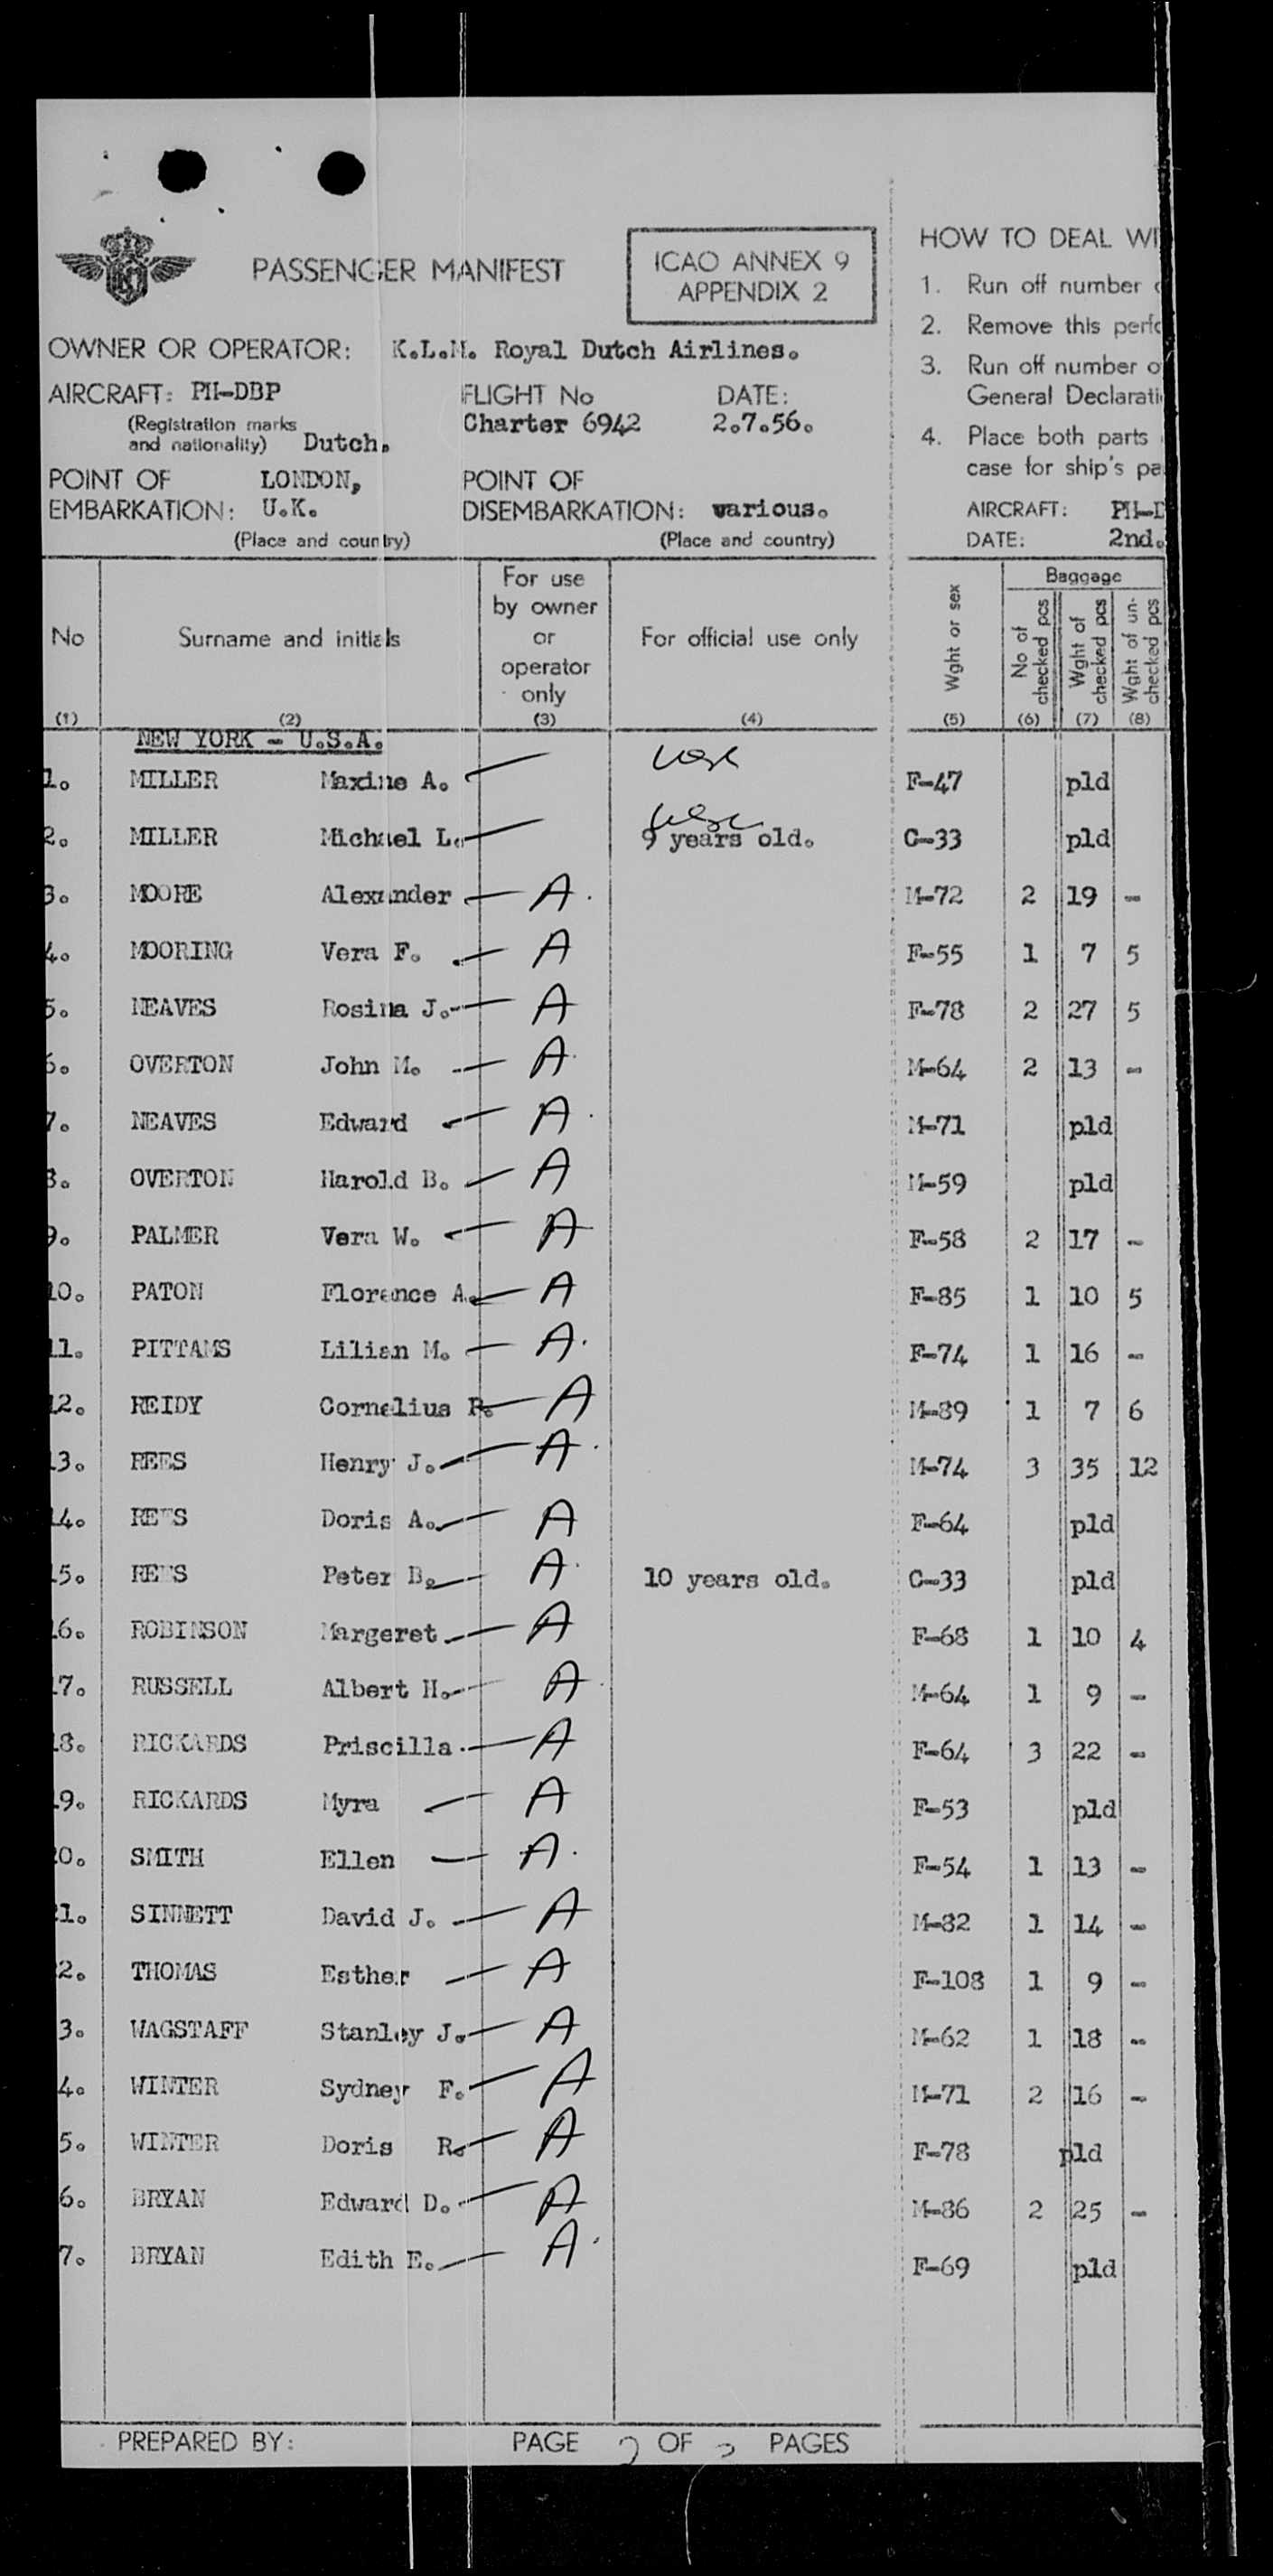 PASSENGER MANIFEST
ICAO ANNEX 9
APPENDIX 2
OWNER OR OPERATOR: K.L.M. Royal Dutch Airlines.
AIRCRAFT: PH-DBP FLIGHT No DATE:
(Registration marks Charter 6942 2.7.56.
and nationality) Dutch.
POINT OF LONDON, POINT OF
EMBARKATION: U.K. DISEMBARKATION: various.
(Place and country) (Place and country)
HOW TO DEAL WI
1. Run off number
2. Remove this perfo
3. Run off number o
General Declarati
4. Place both parts
case for ship's pa
AIRCRAFT: PH-D
DATE: 2nd.
No Surname and initials For use by owner or operator only For official use only Wght or sex Baggage No of checked pcs Wght of checked pcs Wght of un-checked pcs
(1) (2) (3) (4) (5) (6) (7) (8)
NEW YORK - U.S.A.
1. MILLER Maxine A. F-47 pld
2. MILLER Michael L. 9 years old. C-33 pld
3. MOORE Alexander A. M-72 2 19 -
4. MOORING Vera F. A F-55 1 7 5
5. NEAVES Rosina J. A F-78 2 27 5
6. OVERTON John M. A. M-64 2 13 -
7. NEAVES Edward A. M-71 pld
8. OVERTON Harold B. A M-59 pld
9. PALMER Vera W. A F-58 2 17 -
10. PATON Florence A. A F-85 1 10 5
11. PITTAMS Lilian M. A. F-74 1 16 -
12. REIDY Cornelius P. A M-89 1 7 6
13. REES Henry J. A. M-74 3 35 12
14. REES Doris A. A F-64 pld
15. REES Peter B. A. 10 years old. C-33 pld
16. ROBINSON Margeret A F-68 1 10 4
17. RUSSELL Albert H. A. M-64 1 9 -
18. RICKARDS Priscilla A F-64 3 22 -
19. RICKARDS Myra A F-53 pld
20. SMITH Ellen A. F-54 1 13 -
21. SINNETT David J. A M-82 1 14 -
2. THOMAS Esther A F-108 1 9 -
3. WAGSTAFF Stanley J. A M-62 1 18 -
4. WINTER Sydney F. A M-71 2 16 -
5. WINTER Doris R. A F-78 pld
6. BRYAN Edward D. A M-86 2 25 -
7. BRYAN Edith E. A. F-69 pld
PREPARED BY: PAGE OF PAGES